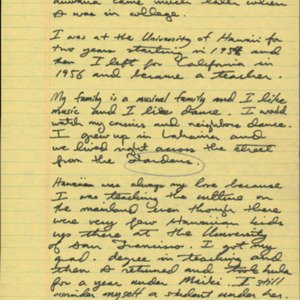 came much later when
I was in college.
I was at the University of Hawaii for
two years starting in 1954 and
then I left for California in
1956 and became a teacher.
My family is a musical family and I like
music and I like dance. I would
watch my cousins and neighbors dance.
I grew up in Lahaina and
we lived right across the street
from the
Hawaiian was always my love because
I was teaching the culture on
the mainland even though there
were very few Hawaiian kids
up there at the University
of San Francisco. I got my
grad. degree in teaching and
then I returned and took hula
for a year under Maiki. I still
consider myself a student under her.